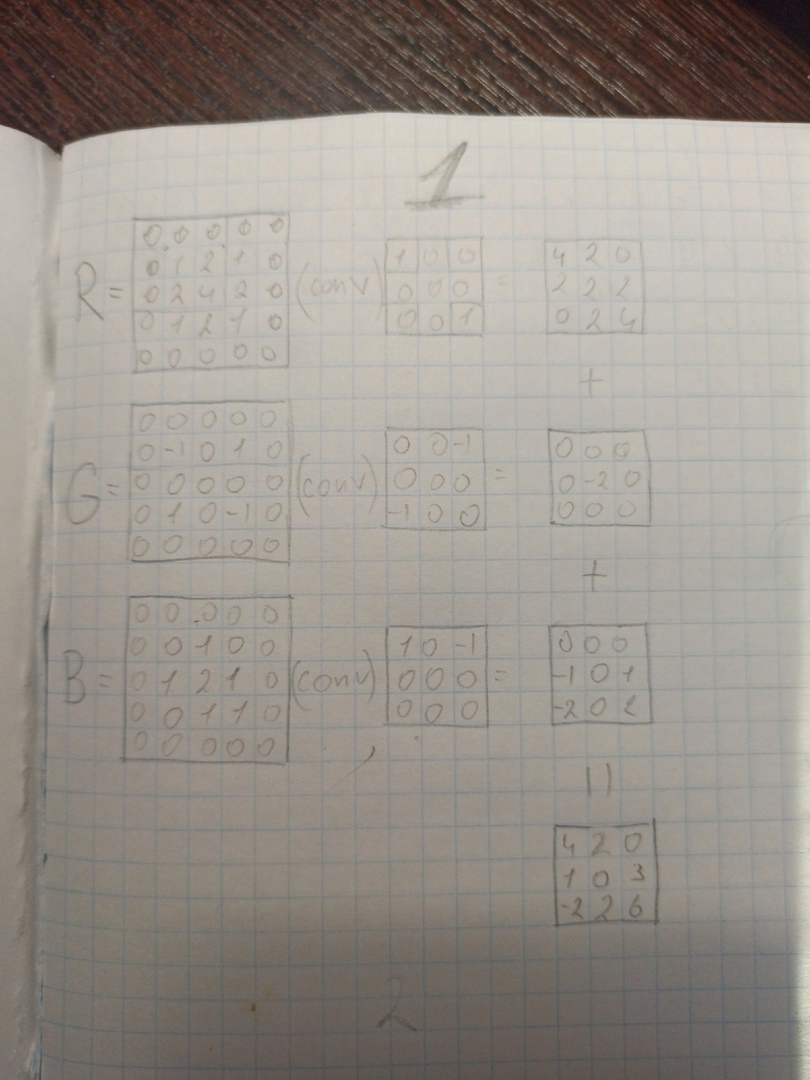 1
0 0 0 0 0
0 1 2 1 0
R = 0 2 4 2 0 (conv)
0 1 2 1 0
0 0 0 0 0
1 0 0
0 0 0 =
0 0 1
4 2 0
2 2 2
0 2 4
+
0 0 0 0 0
0 -1 0 1 0
G = 0 0 0 0 0 (conv)
0 1 0 -1 0
0 0 0 0 0
0 0 -1
0 0 0 =
-1 0 0
0 0 0
0 -2 0
0 0 0
+
0 0 0 0 0
0 0 1 0 0
B = 0 1 2 1 0 (conv)
0 0 1 1 0
0 0 0 0 0
1 0 -1
0 0 0 =
0 0 0
0 0 0
-1 0 1
-2 0 2
=
4 2 0
1 0 3
-2 2 6
2